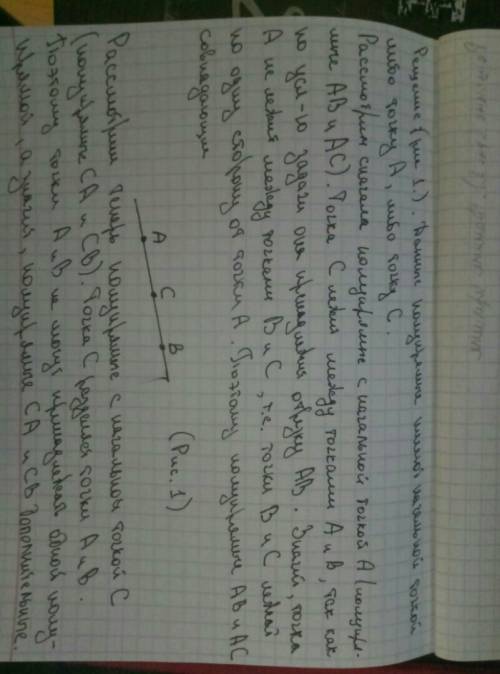 Решение (рис 1.). Данные полупрямые имеют начальной точкой
либо точку A, либо точку C.
Рассмотрим сначала полупрямые с начальной точкой A (полупря-
мые AB и AC). Точка C лежит между точками A и B, так как
по усл-ю задачи она принадлежит отрезку AB. Значит, точка
A не лежит между точками B и C, т.е. точки B и C лежат
по одну сторону от точки A. Поэтому полупрямые AB и AC
совпадающие
A
C
B
(Рис. 1)
Рассмотрим теперь полупрямые с начальной точкой C
(полупрямые CA и CB). Точка C разделяет точки A и B.
Поэтому точки A и B не могут принадлежать одной полу-
прямой, а значит, полупрямые CA и CB дополнительные.